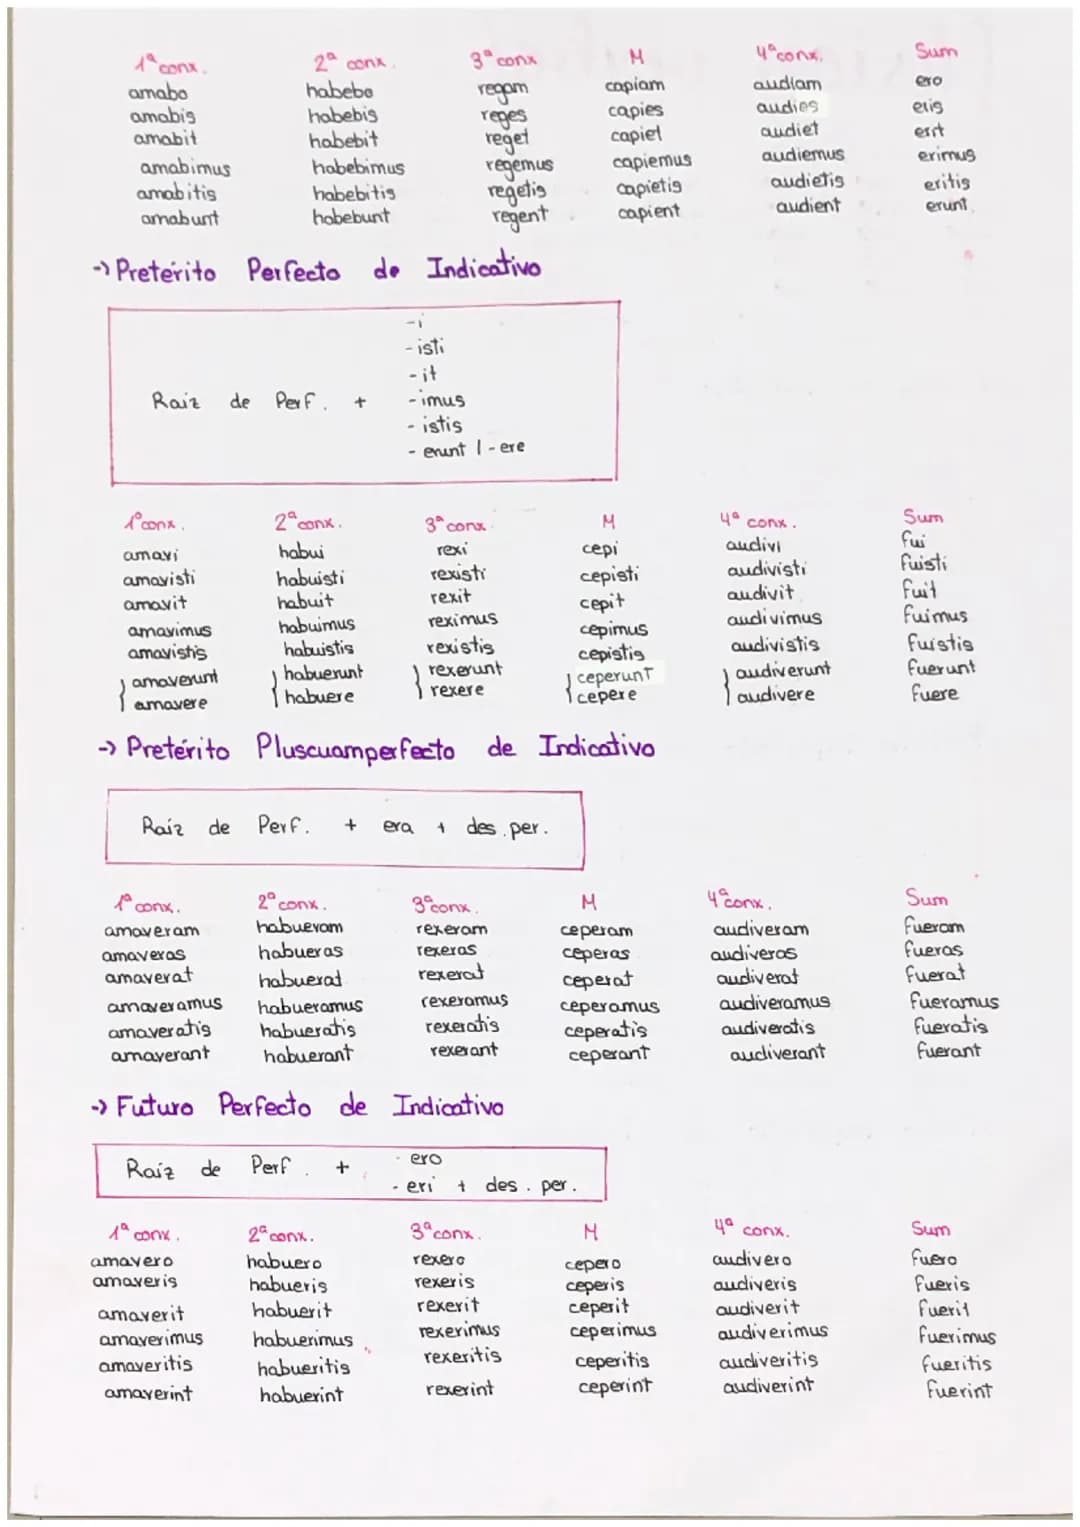 1ª conx. 2ª conx. 3ª conx M 4ª conx. Sum
amabo habebo regam capiam audiam ero
amabis habebis reges capies audies eris
amabit habebit reget capiet audiet erit
amabimus habebimus regemus capiemus audiemus erimus
amabitis habebitis regetis capietis audietis eritis
amabunt habebunt regent capient audient erunt
-> Pretérito Perfecto de Indicativo
-i
- isti
- it
Raiz de Perf. + - imus
- istis
- erunt / - ere
1ª conx. 2ª conx. 3ª conx. M 4ª conx. Sum
amavi habui rexi cepi audivi fui
amavisti habuisti rexisti cepisti audivisti fuisti
amavit habuit rexit cepit audivit fuit
amavimus habuimus reximus cepimus audivimus fuimus
amavistis habuistis rexistis cepistis audivistis fuistis
amaverunt habuerunt rexerunt ceperunt audiverunt fuerunt
amavere habuere rexere cepere audivere fuere
-> Pretérito Pluscuamperfecto de Indicativo
Raíz de Perf. + era + des.per.
1ª conx. 2ª conx. 3ª conx. M 4ª conx. Sum
amaveram habueram rexeram ceperam audiveram fueram
amaveras habueras rexeras ceperas audiveras fueras
amaverat habuerat rexerat ceperat audiverat fuerat
amaveramus habueramus rexeramus ceperamus audiveramus fueramus
amaveratis habueratis rexeratis ceperatis audiveratis fueratis
amaverant habuerant rexerant ceperant audiverant fuerant
-> Futuro Perfecto de Indicativo
- ero
Raíz de Perf. + - eri + des. per.
1ª conx. 2ª conx. 3ª conx. M 4ª conx. Sum
amavero habuero rexero cepero audivero fuero
amaveris habueris rexeris ceperis audiveris fueris
amaverit habuerit rexerit ceperit audiverit fuerit
amaverimus habuerimus rexerimus ceperimus audiverimus fuerimus
amaveritis habueritis rexeritis ceperitis audiveritis fueritis
amaverint habuerint rexerint ceperint audiverint fuerint